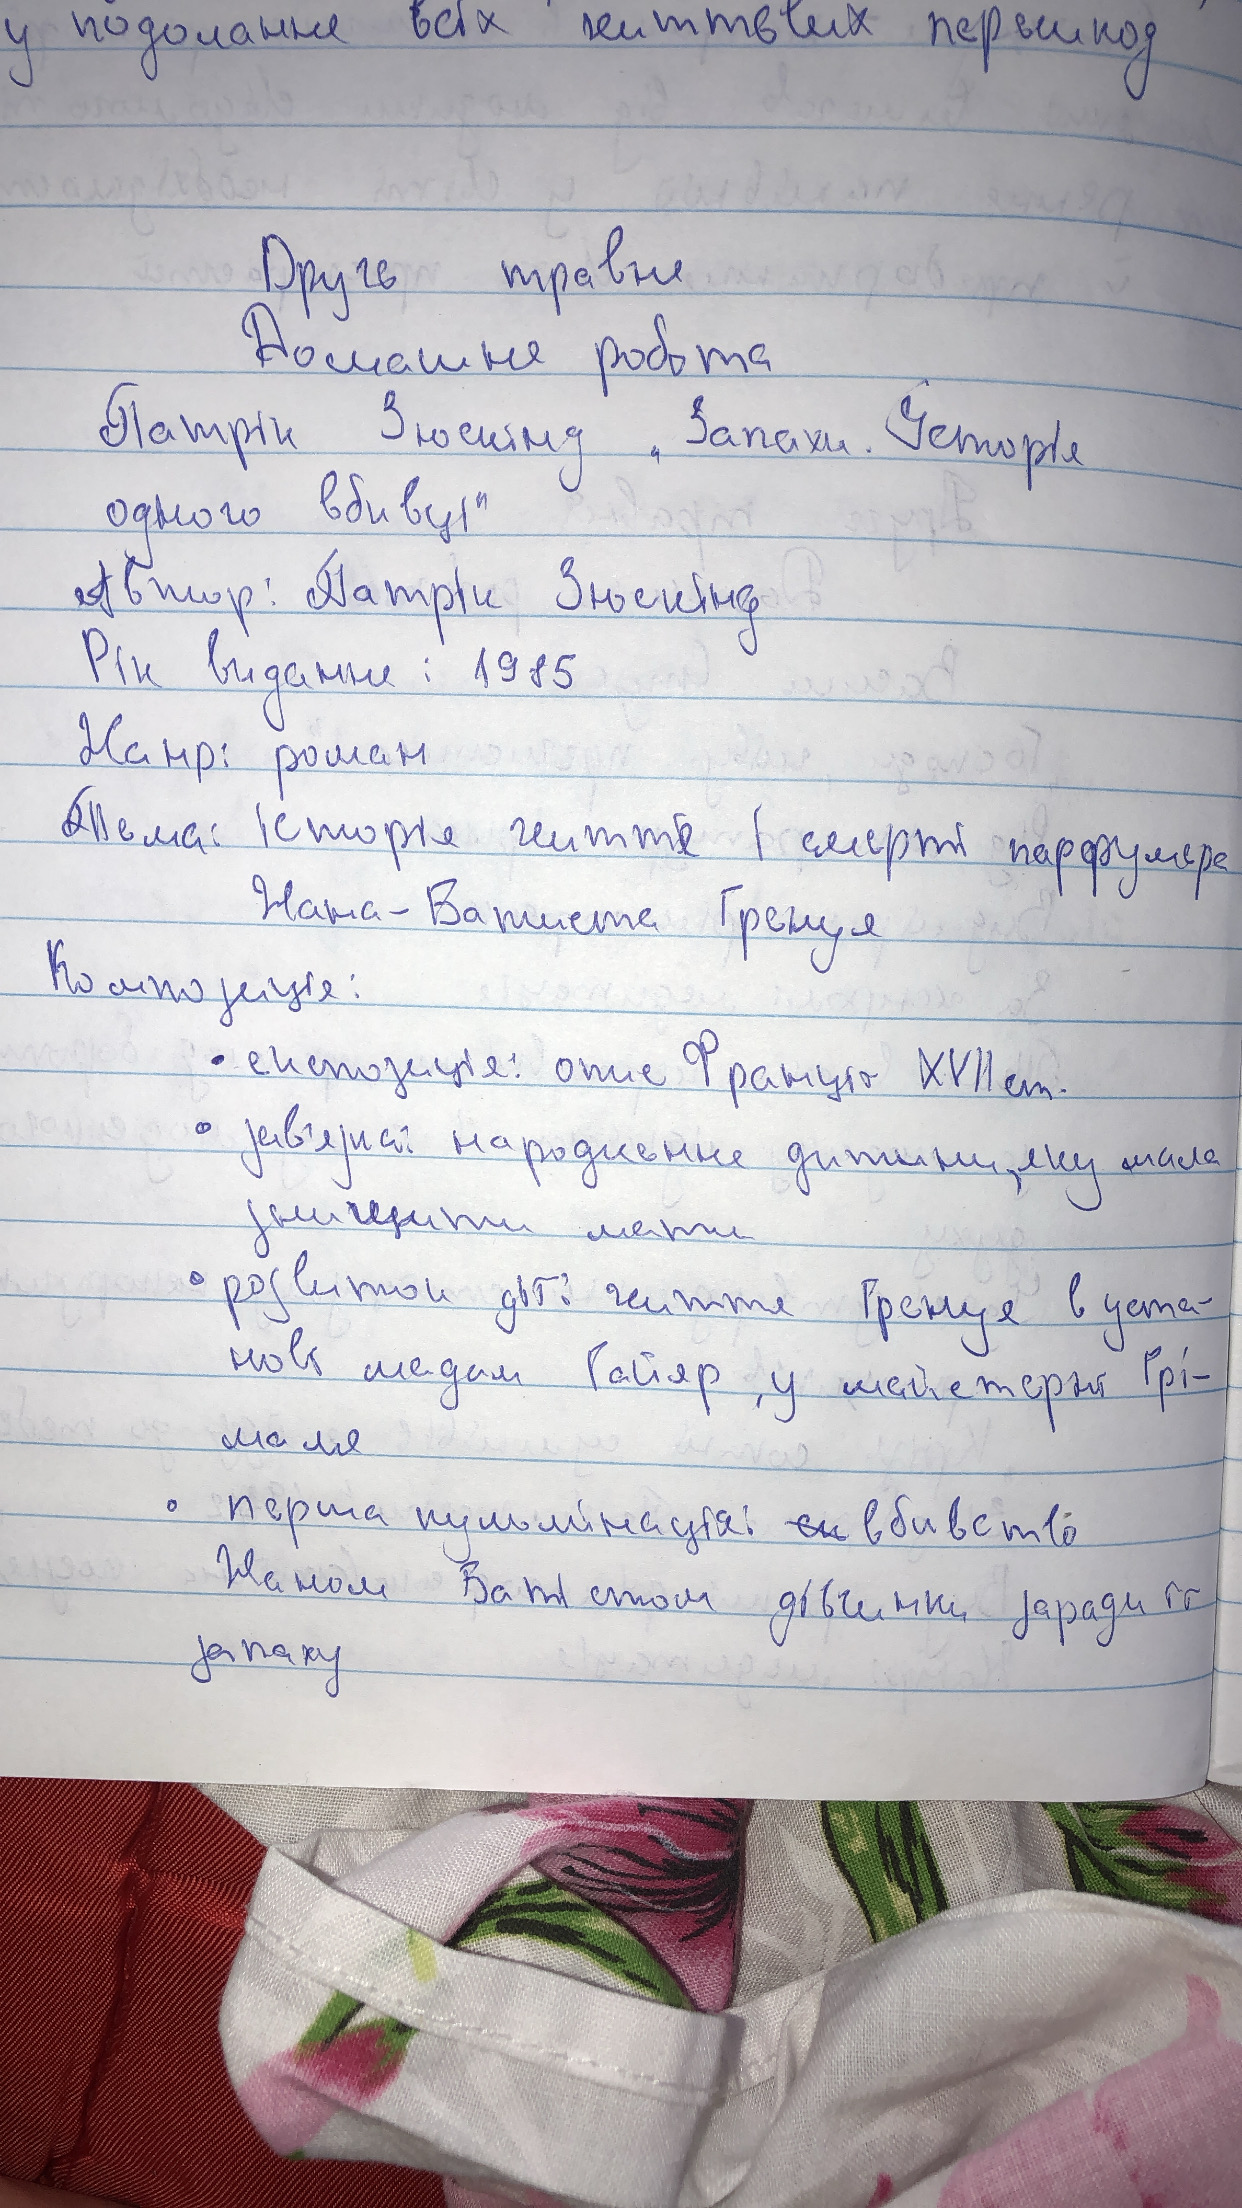 у подоланні всіх життєвих перешкод
Друге травня
Домашня робота
Патрік Зюскінд „Запахи. Історія
одного вбивці"
Автор: Патрік Зюскінд
Рік видання: 1985
Жанр: роман
Тема: історія життя і смерті парфумера
Жана-Батиста Гренуя
Композиція:
• експозиція: опис Франції XVII ст.
• зав'язка: народження дитини, яку мала
знищити мати
• розвиток дії: життя Гренуя в уста-
нові мадам Гайяр, у майстерні Грі-
маля
• перша кульмінація: вбивство
Жаном Батістом дівчинки заради її
запаху